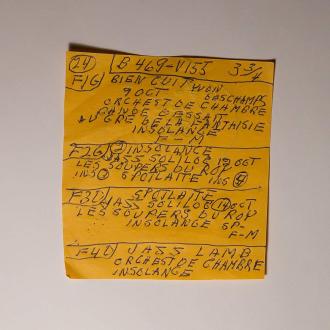 24 B 469-V155 3 3/4
F1G BIEN CUIT YVON
9 OCT DESCHAMPS
ORCHEST DE CHAMBRE
BANDE D'ESSAI
AU GRE DE LA FANTAISIE
INSOLANGE
F-M
F2G INSOLANCE
JASS SOLILOC 19 OCT
LES SOUPERS DU ROY
INS SPOTLAITE INS
F3D SPOTLAITE
JASS SOLILOC 19 OCT
LES SOUPERS DU ROY
INSOLANGE SP-
F-M
F4D JASS LAMB
ORCHEST DE CHAMBRE
INSOLANGE